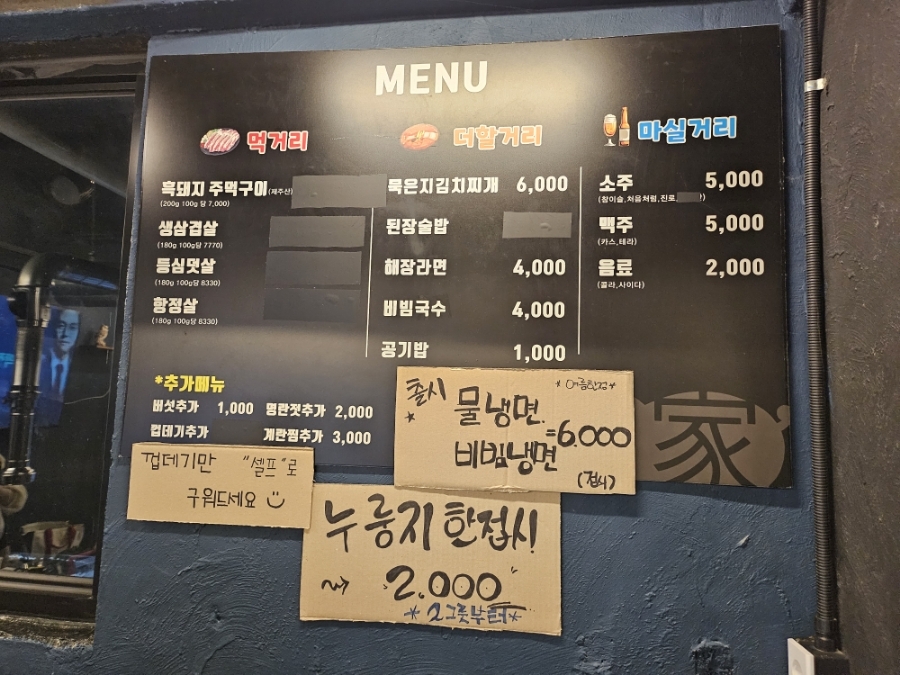 MENU
먹거리
흑돼지 주먹구이(제주산)
(200g 100g 당 7,000)
생삼겹살
(180g 100g당 7770)
등심덧살
(180g 100g당 8330)
항정살
(180g 100g당 8330)
*추가메뉴
버섯추가 1,000 명란젓추가 2,000
껍데기추가 계란찜추가 3,000
더할거리
묵은지김치찌개 6,000
된장술밥
해장라면 4,000
비빔국수 4,000
공기밥 1,000
마실거리
소주 5,000
(참이슬,처음처럼,진로
맥주 5,000
(카스,테라)
음료 2,000
(콜라,사이다)
家
출시 *여름한정*
물냉면
비빔냉면 =6.000
(접시)
껍데기만 "셀프"로
구워드세요
누룽지 한접시!
2.000
*2그릇부터*